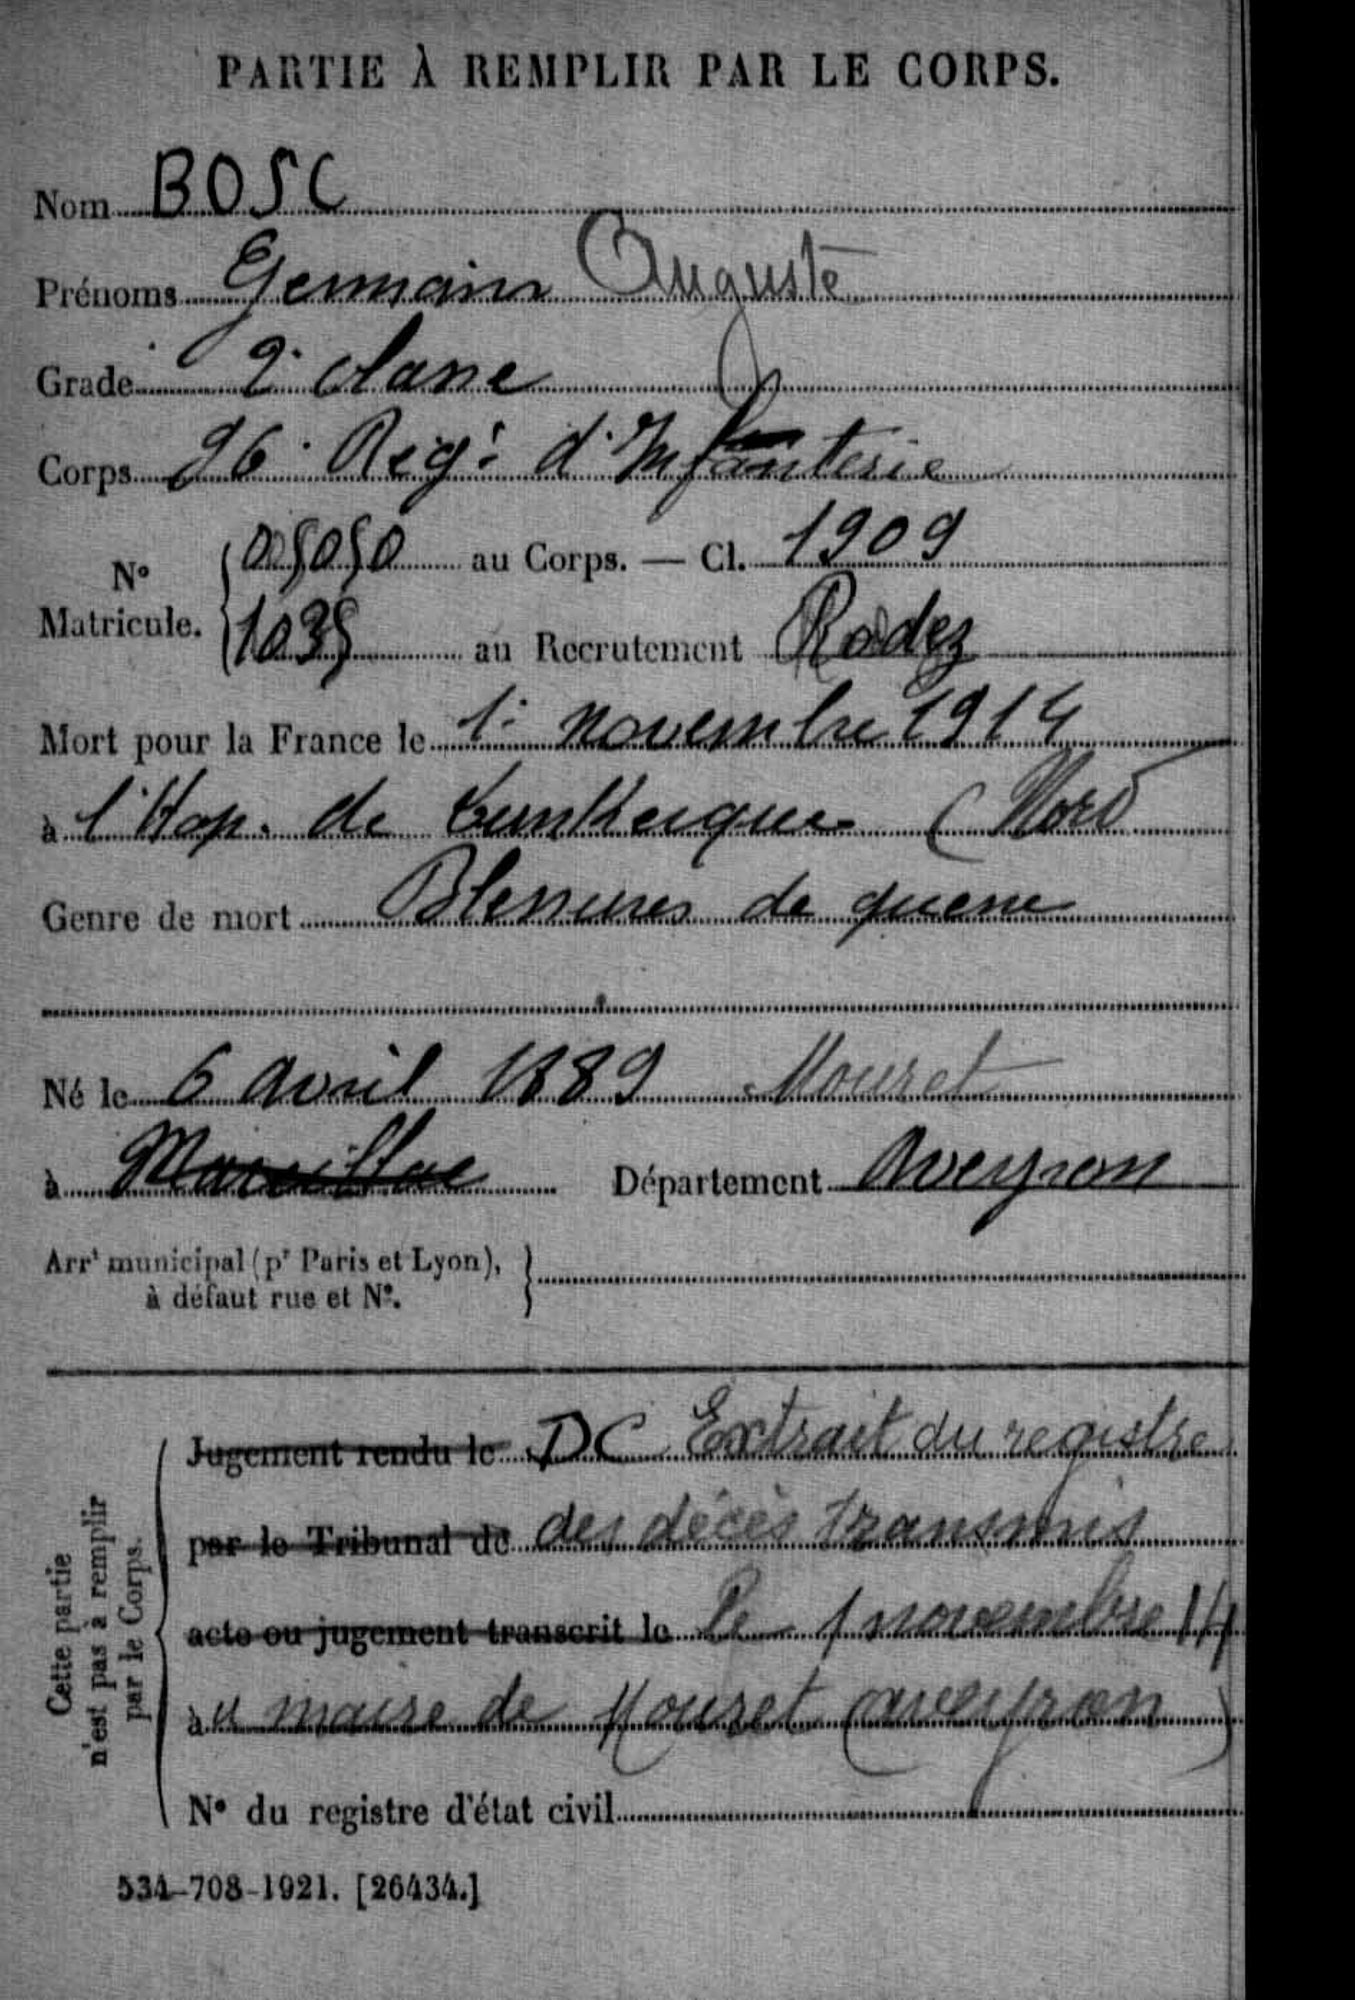 PARTIE À REMPLIR PAR LE CORPS.
Nom BOSC
Prénoms Germain Auguste
Grade 2e classe
Corps 96e Régt d'Infanterie
No Matricule. { 005050 au Corps. — Cl. 1909
1035 au Recrutement Rodez
Mort pour la France le 1er novembre 1914
à l'Hop. de Dunkerque (Nord
Genre de mort Blessures de guerre
Né le 6 Avril 1889 Mouret
à Marcillac Département Aveyron
Arrt municipal (pr Paris et Lyon),
à défaut rue et No. }
Cette partie
n'est pas à remplir
par le Corps.
Jugement rendu le DC Extrait du registre
par le Tribunal de des décès transmis
acte ou jugement transcrit le le 1 novembre 14
au maire de Mouret (aveyron)
No du registre d'état civil
534-708-1921. [26434.]